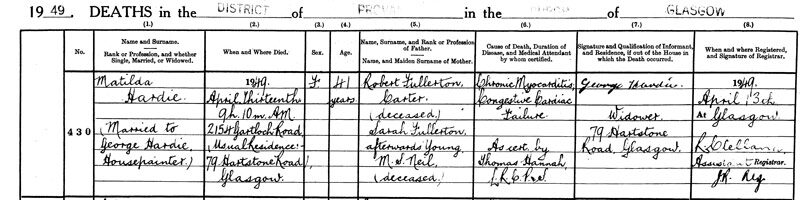 1949. DEATHS in the DISTRICT of PROVAN in the of GLASGOW
(1.) (2.) (3.) (4.) (5.) (6.) (7.) (8.)
No.
Name and Surname.
Rank or Profession, and whether
Single, Married, or Widowed.
When and Where Died.
Sex.
Age.
Name, Surname, and Rank or Profession
of Father.
Name, and Maiden Surname of Mother.
Cause of Death, Duration of
Disease, and Medical Attendant
by whom certified.
Signature and Qualification of Informant,
and Residence, if out of the House in
which the Death occurred.
When and where Registered,
and Signature of Registrar.
430
Matilda
Hardie
(Married to
George Hardie
Housepainter)
1949.
April Thirteenth
9h. 10m. AM
2154 Gartloch Road
(Usual Residence:
79 Hartstone Road),
Glasgow.
F
41
years
Robert Fullerton,
Carter,
(deceased)
Sarah Fullerton,
afterwards Young,
M.S. Neil,
(deceased)
Chronic Myocarditis,
Congestive Cardiac
Failure
As cert. by
Thomas Hannah,
George Hardie
Widower.
79 Hartstone
Road, Glasgow.
1949.
April 13th
At Glasgow
Assistant Registrar.